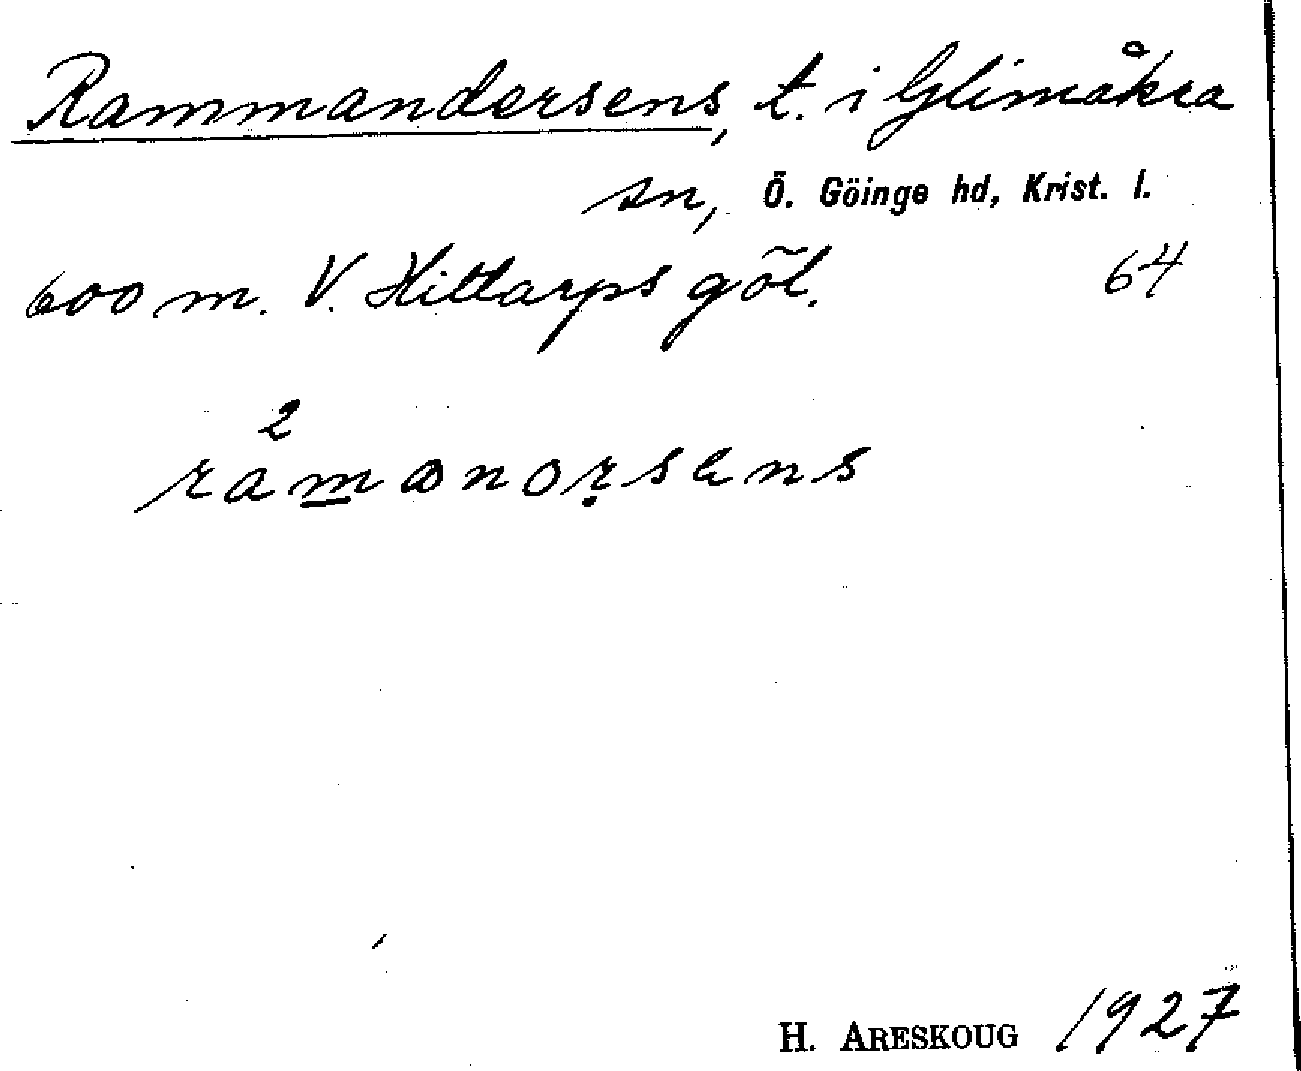 Rammandersens, t. i Glimåkra
sn, Ö. Göinge hd, Krist. l.
600 m. V. Hittarps göl. 64
2
ramanorsens
H. ARESKOUG 1927